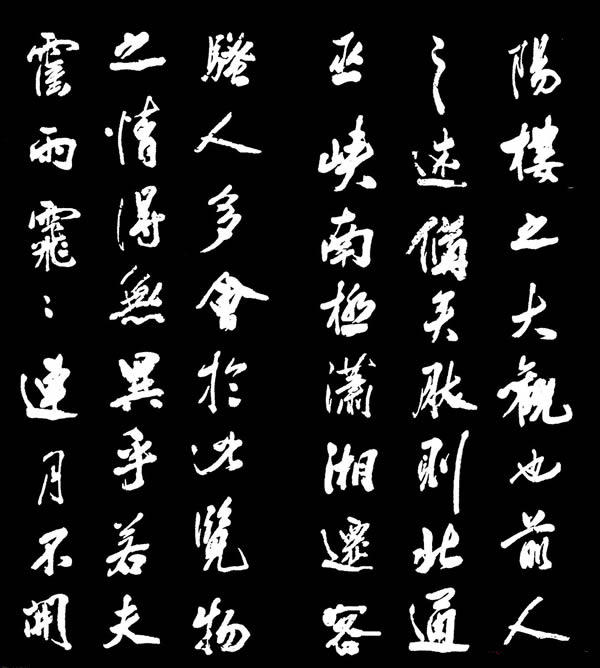 陽樓之大觀也前人
之述備矣然則北通
巫峽南極瀟湘遷客
騷人多會於此覽物
之情得無異乎若夫
霪雨霏々連月不開